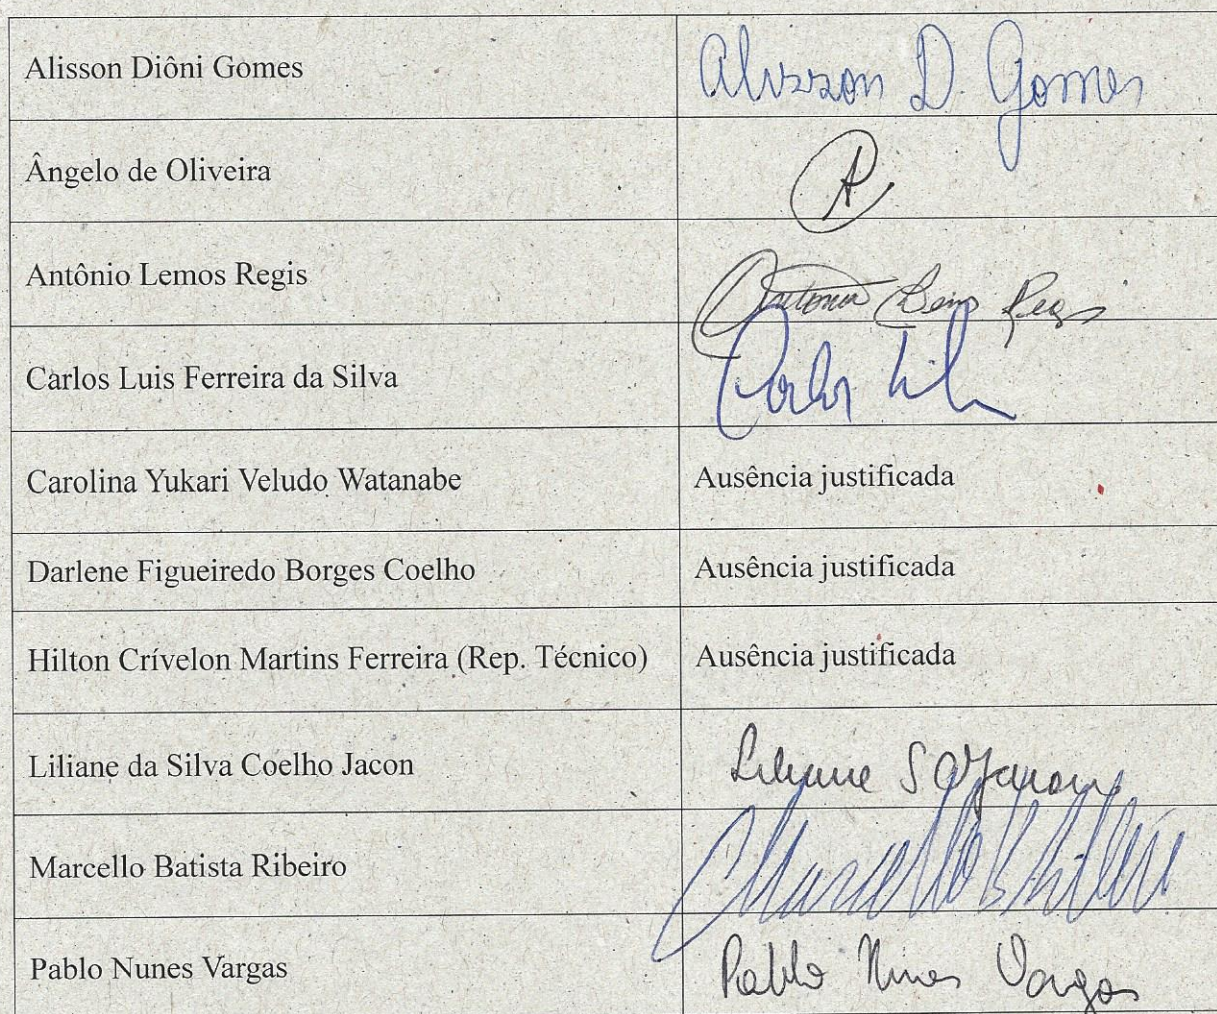 Alisson Diôni Gomes Alisson D. Gomes
Ângelo de Oliveira A
Antônio Lemos Regis Antonio Lemos Regis
Carlos Luis Ferreira da Silva Carlos Silva
Carolina Yukari Veludo Watanabe Ausência justificada
Darlene Figueiredo Borges Coelho Ausência justificada
Hilton Crívelon Martins Ferreira (Rep. Técnico) Ausência justificada
Liliane da Silva Coelho Jacon Liliane S C Jacon
Marcello Batista Ribeiro Marcello B Ribeiro
Pablo Nunes Vargas Pablo Nunes Vargas